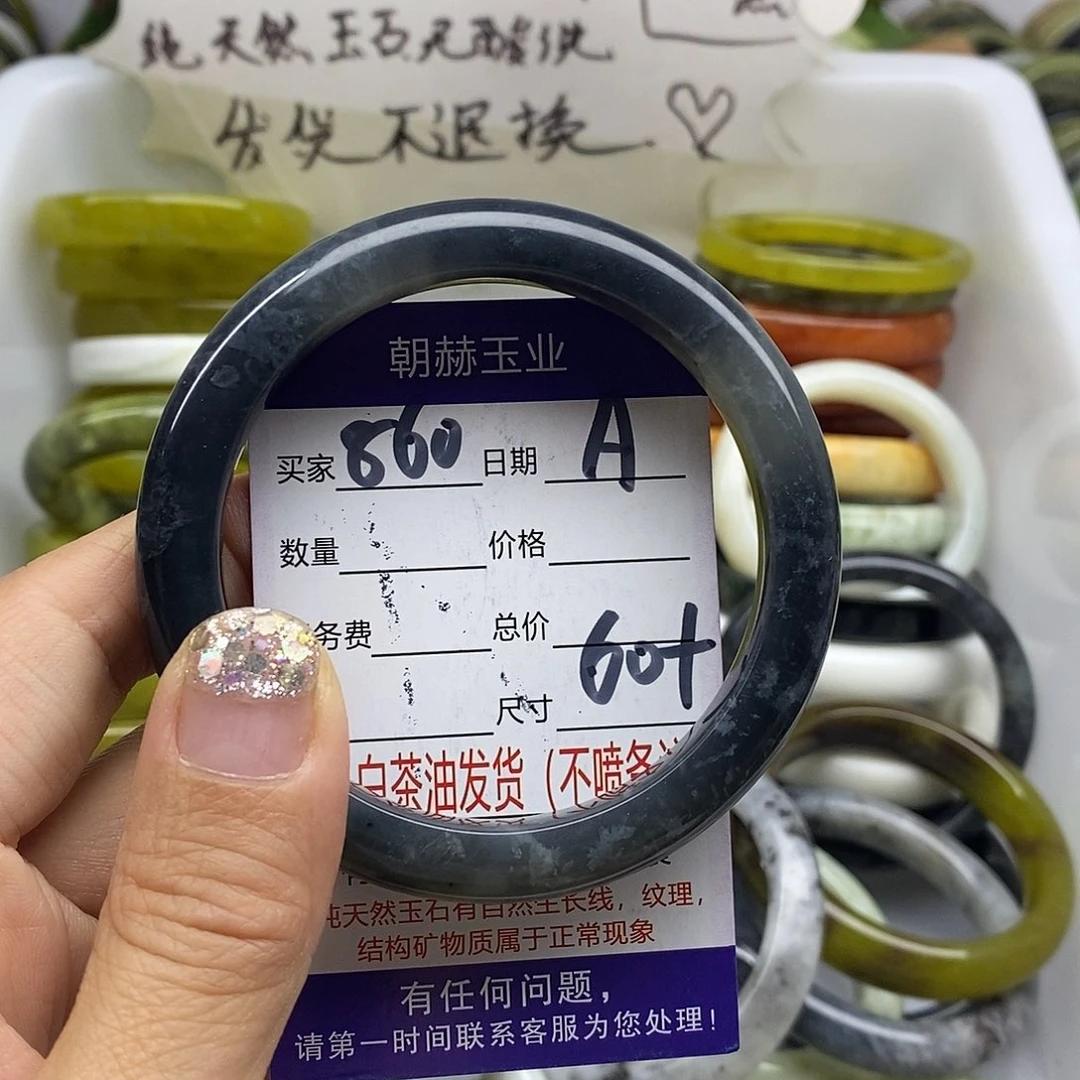 纯天然玉石无酸洗
发货不退换
朝赫玉业
买家 860 日期 A
数量 价格
务费 总价
尺寸 60+
白茶油发货（不喷
纯天然玉石有自然生长线，纹理，
结构矿物质属于正常现象
有任何问题，
请第一时间联系客服为您处理！